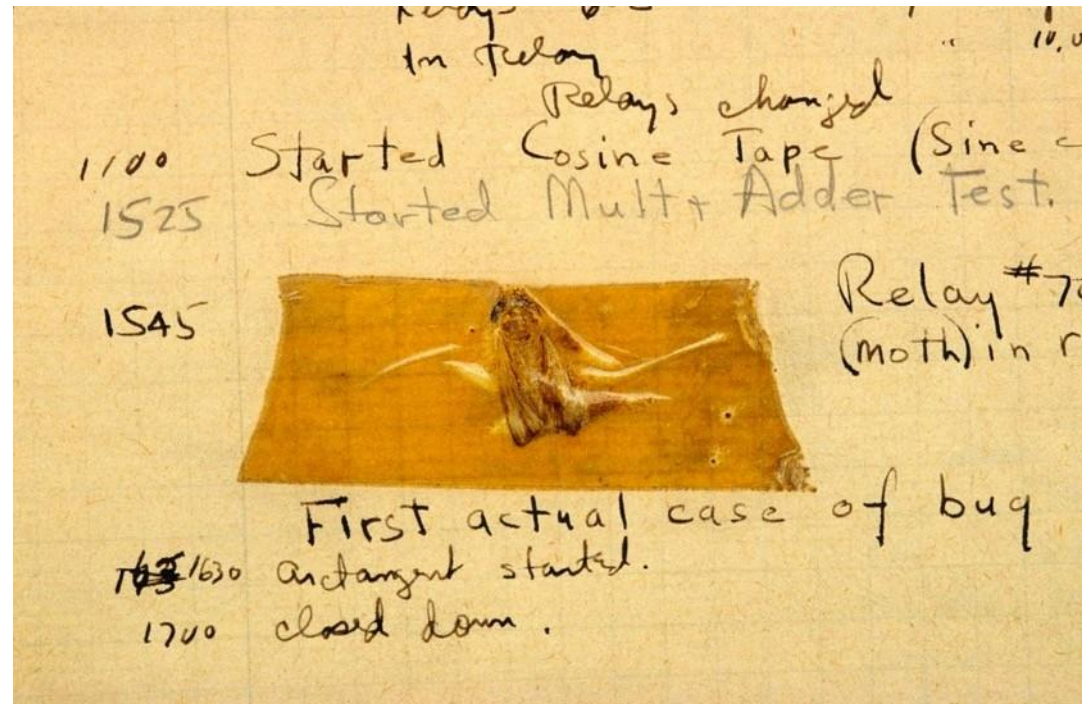 In Relay
Relays changed
1100 Started Cosine Tape (Sine
1525 Started Mult+ Adder Test.
1545 Relay #70
(moth) in r
First actual case of bug
1630 arctangent started.
1700 closed down.